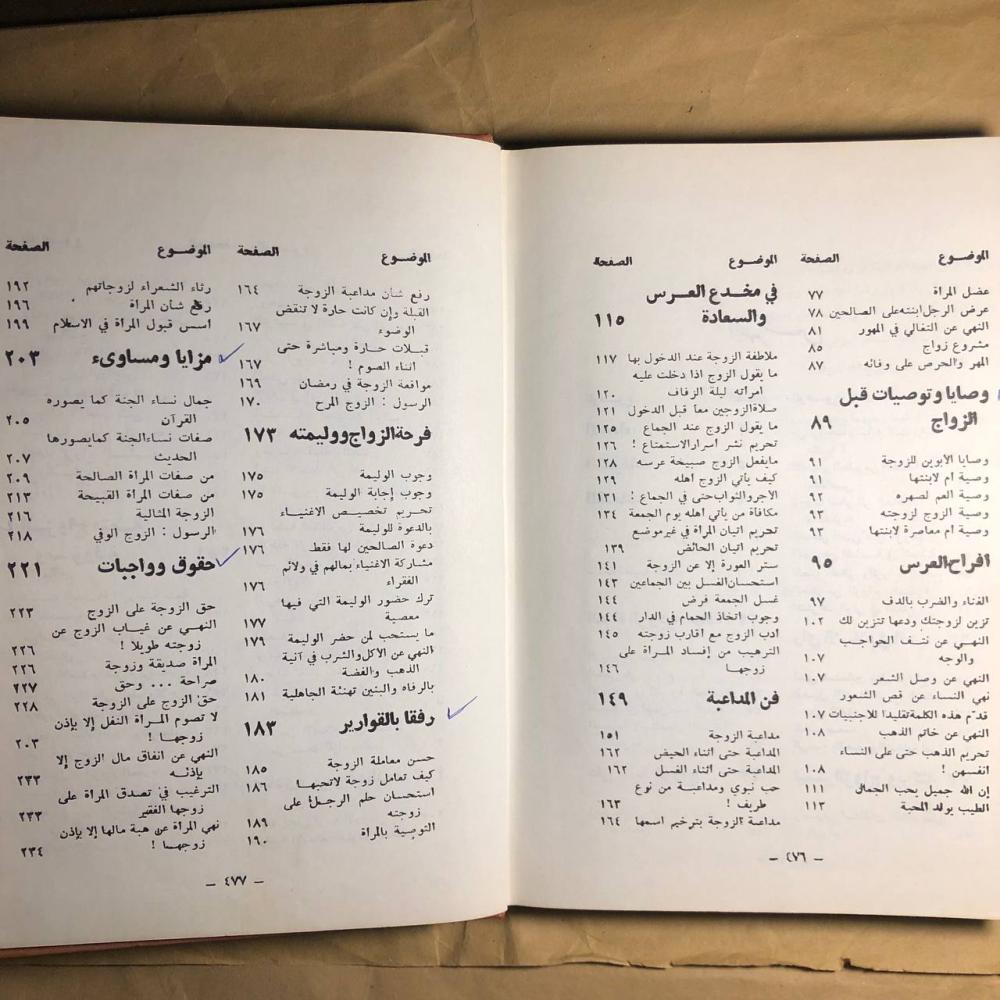 الموضوع الصفحة
عضل المرأة ٧٧
عرض الرجل ابنته على الصالحين ٧٨
النهي عن التغالي في المهور ٨١
مشروع زواج ٨٥
المهر والحرص على وفائه ٨٧
وصايا وتوصيات قبل
الزواج ٨٩
وصايا الأبوين للزوجة ٩١
وصية أم لابنتها ٩١
وصية العم لصهره ٩٢
وصية الزوج لزوجته ٩٣
وصية أم معاصرة لابنتها ٩٣
افراح العرس ٩٥
الغناء والضرب بالدف ٩٧
تزين لزوجتك ودعها تتزين لك ١٠٢
النهي عن نتف الحواجب
والوجه ١٠٧
النهي عن وصل الشعر ١٠٧
نهي النساء عن قص الشعور
قدّم هذه الكلمة تقليدا للاجنبيات ١٠٧
النهي عن خاتم الذهب ١٠٨
تحريم الذهب حتى على النساء
انفسهن ! ١٠٨
إن الله جميل يحب الجمال ١١١
الطيب يولد المحبة ١١٣
الموضوع الصفحة
في مخدع العرس
والسعادة ١١٥
ملاطفة الزوجة عند الدخول بها ١١٧
ما يقول الزوج اذا دخلت عليه
امرأته ليلة الزفاف ١٢٠
صلاة الزوجين معا قبل الدخول ١٢١
ما يقول الزوج عند الجماع ١٢٥
تحريم نشر اسرار الاستمتاع ! ١٢٦
ما يفعل الزوج صبيحة عرسه ١٢٨
كيف يأتي الزوج أهله ١٢٩
الأجر والثواب حتى في الجماع ! ١٣١
مكافأة من يأتي أهله يوم الجمعة ١٣٤
تحريم اتيان المرأة في غير موضع
تحريم اتيان الحائض ١٣٩
ستر العورة إلا عن الزوجة ١٤١
استحسان الغسل بين الجماعين ١٤٣
غسل الجمعة فرض ١٤٤
وجوب اتخاذ الحمام في الدار ١٤٤
ادب الزوج مع أقارب زوجته ١٤٥
الترهيب من إفساد المرأة على
زوجها ١٤٦
فن المداعبة ١٤٩
مداعبة الزوجة ١٥١
المداعبة حتى أثناء الحيض ١٦٢
المداعبة حتى أثناء الغسل ١٦٢
حب نبوي ومداعبة من نوع
طريف ! ١٦٣
مداعبة الزوجة بترخيم اسمها ١٦٤
— ٤٧٦ —
الموضوع الصفحة
رفع شأن مداعبة الزوجة ١٦٤
القبلة وإن كانت حارة لا تنقض
الوضوء ١٦٧
قبلات حارة ومباشرة حتى
اثناء الصوم ! ١٦٧
مواقعة الزوجة في رمضان ١٦٩
الرسول : الزوج المرح ١٧٠
فرحة الزواج ووليمته ١٧٣
وجوب الوليمة ١٧٥
وجوب إجابة الوليمة ١٧٥
تحريم تخصيص الاغنياء
بالدعوة للوليمة ١٧٦
دعوة الصالحين لها فقط ١٧٦
مشاركة الاغنياء بمالهم في ولائم
الفقراء ١٧٦
ترك حضور الوليمة التي فيها
معصية ١٧٧
ما يستحب لمن حضر الوليمة ١٧٩
النهي عن الأكل والشرب في آنية
الذهب والفضة ١٨٠
بالرفاه والبنين تهنئة الجاهلية ١٨١
رفقا بالقوارير ١٨٣
حسن معاملة الزوجة ١٨٥
كيف تعامل زوجة لا تحبها ١٨٦
استحسان حلم الرجل على
زوجته ١٨٩
التوصية بالمرأة ١٩٠
الموضوع الصفحة
رثاء الشعراء لزوجاتهم ١٩٢
رفع شأن المرأة ١٩٦
اسس قبول المرأة في الاسلام ١٩٩
مزايا ومساوىء ٢٠٣
جمال نساء الجنة كما يصوره
القرآن ٢٠٥
صفات نساء الجنة كما يصورها
الحديث ٢٠٧
من صفات المرأة الصالحة ٢٠٩
من صفات المرأة القبيحة ٢١٣
الزوجة المثالية ٢١٦
الرسول : الزوج الوفي ٢١٨
حقوق وواجبات ٢٢١
حق الزوجة على الزوج ٢٢٣
النهي عن غياب الزوج عن
زوجته طويلا ! ٢٢٦
المرأة صديقة وزوجة ٢٢٦
صراحة ... وحق ٢٢٧
حق الزوج على الزوجة ٢٢٨
لا تصوم المرأة النفل إلا بإذن
زوجها ! ٢٠٣
النهي عن انفاق مال الزوج إلا
بإذنه ٢٣٣
الترغيب في تصدق المرأة على
زوجها الفقير ٢٣٣
نهي المرأة عن هبة مالها إلا بإذن
زوجها ! ٢٣٤
— ٤٧٧ —